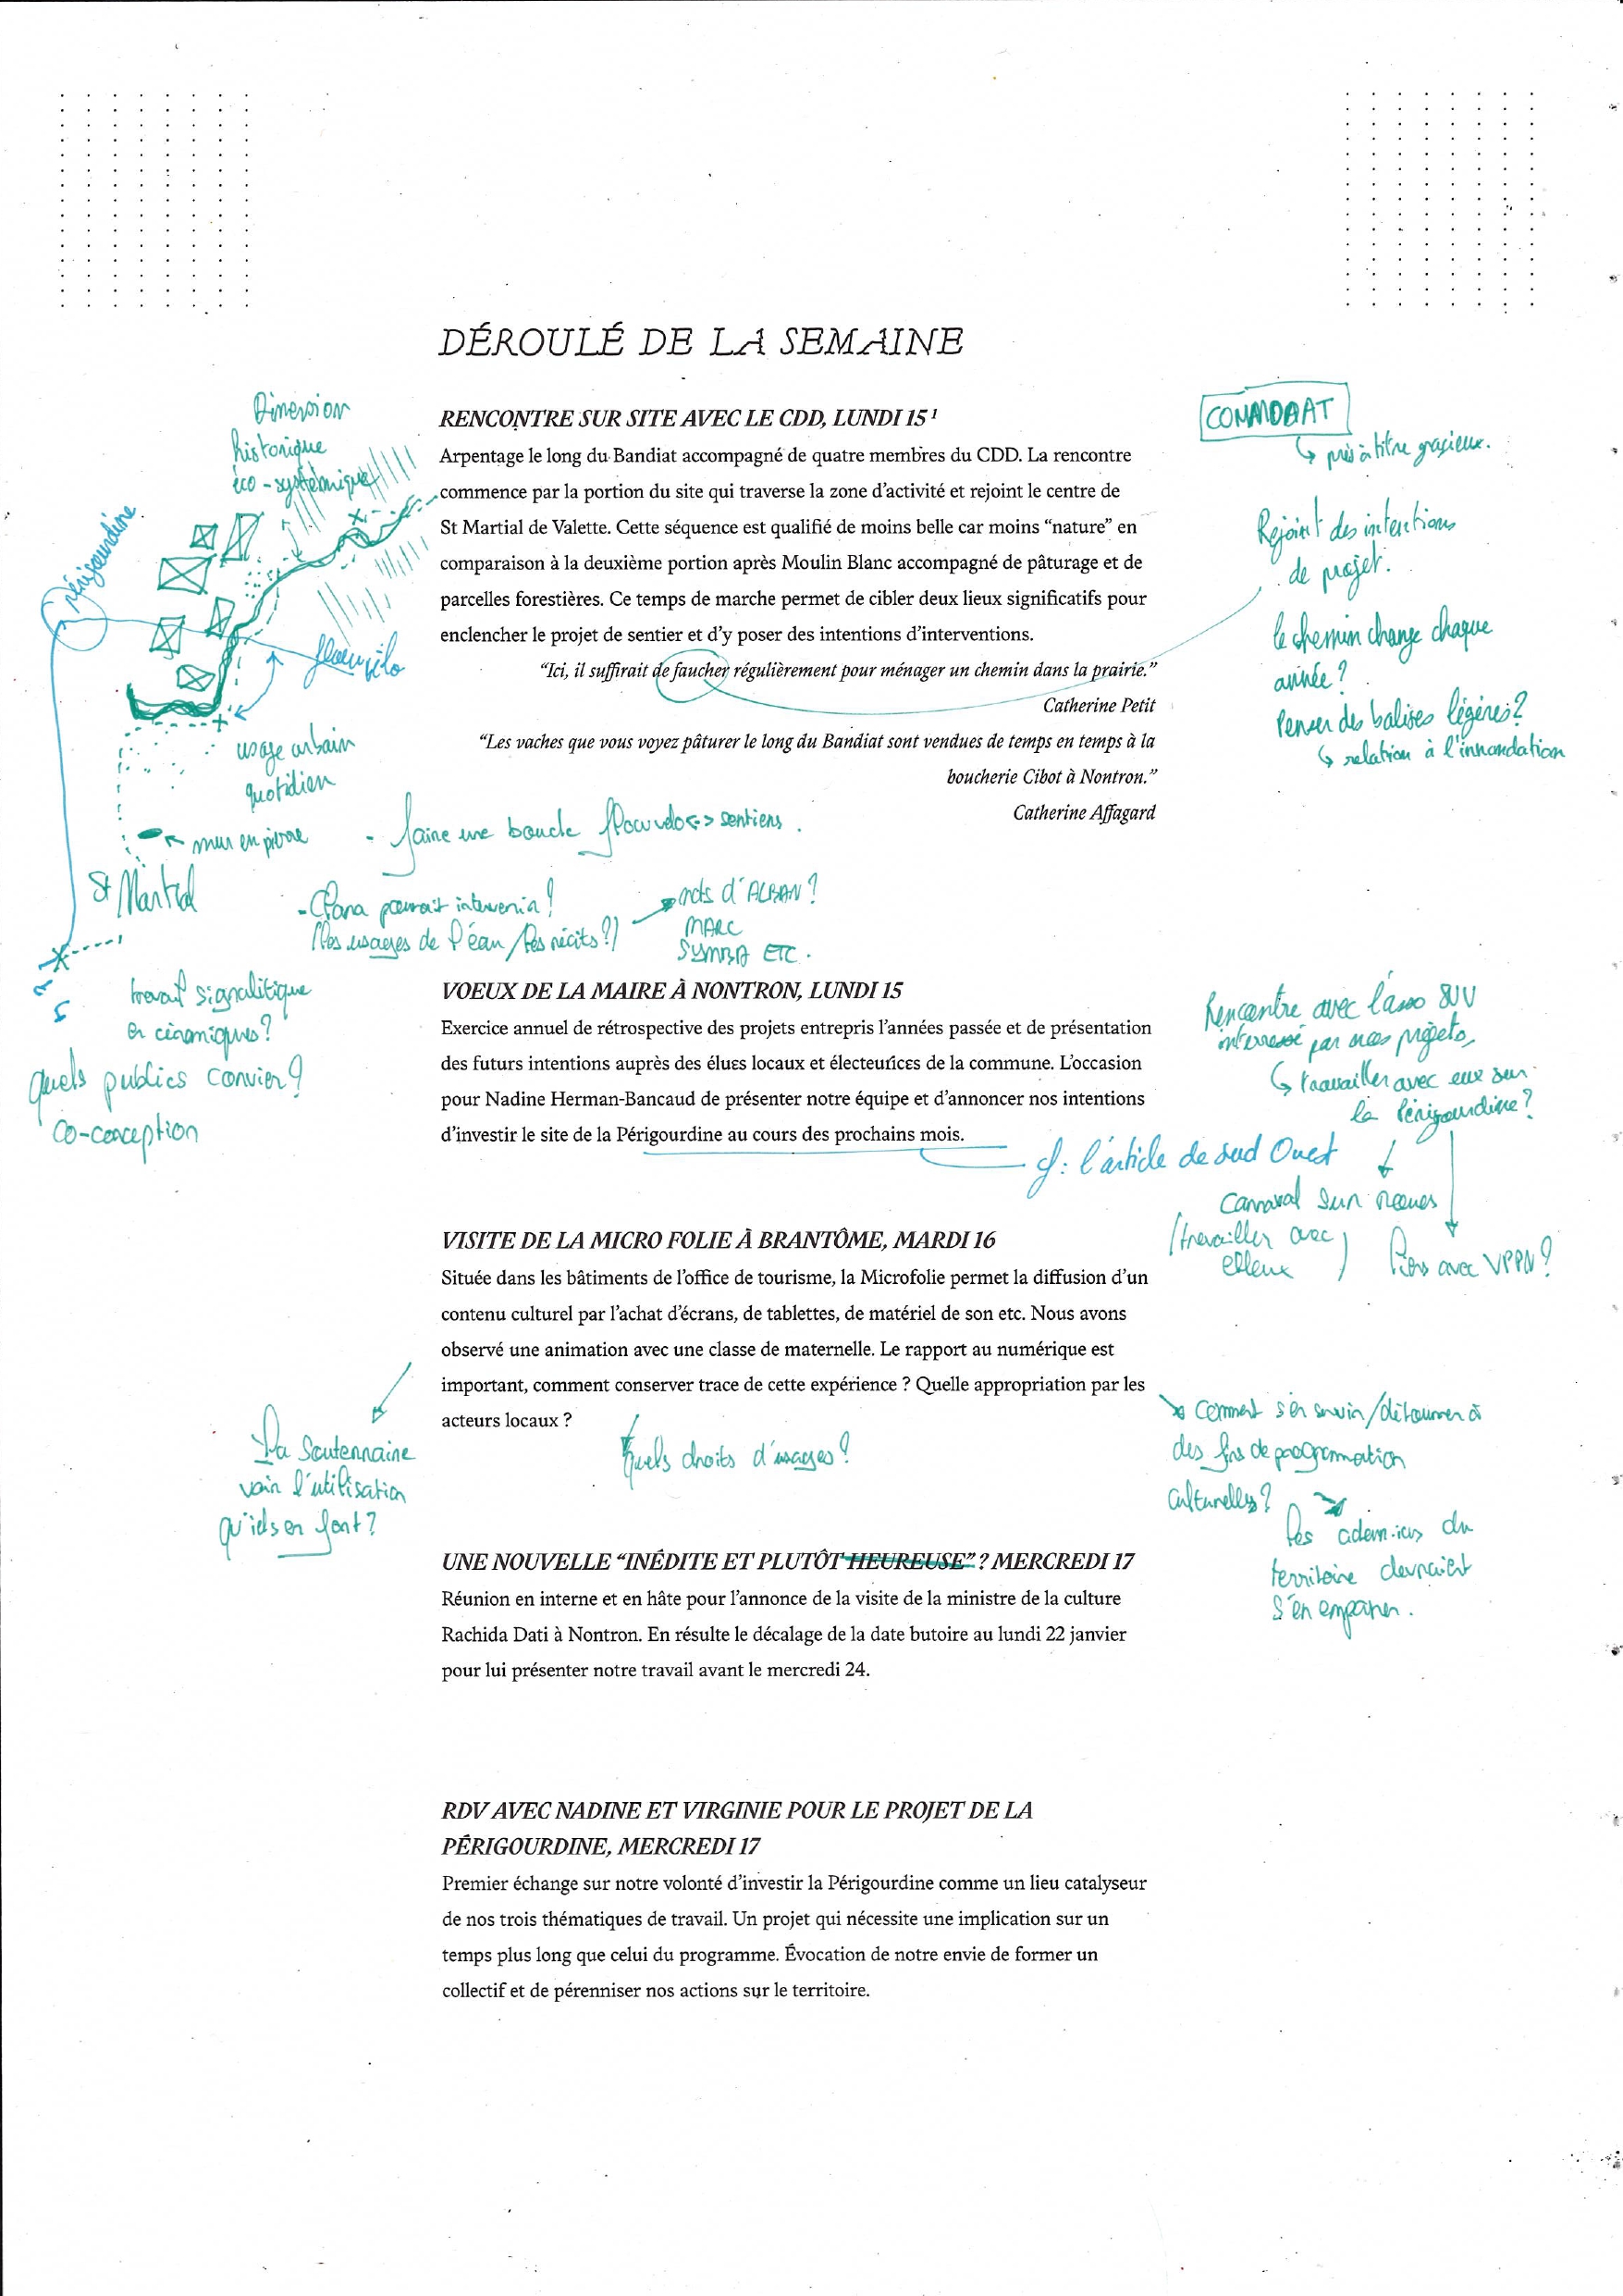 DÉROULÉ DE LA SEMAINE
RENCONTRE SUR SITE AVEC LE CDD, LUNDI 15 ¹
Arpentage le long du Bandiat accompagné de quatre membres du CDD. La rencontre
commence par la portion du site qui traverse la zone d’activité et rejoint le centre de
St Martial de Valette. Cette séquence est qualifié de moins belle car moins “nature” en
comparaison à la deuxième portion après Moulin Blanc accompagné de pâturage et de
parcelles forestières. Ce temps de marche permet de cibler deux lieux significatifs pour
enclencher le projet de sentier et d’y poser des intentions d’interventions.
“Ici, il suffirait de faucher régulièrement pour ménager un chemin dans la prairie.”
Catherine Petit
“Les vaches que vous voyez pâturer le long du Bandiat sont vendues de temps en temps à la
boucherie Cibot à Nontron.”
Catherine Affagard
Dimension
historique
éco-systémique
périgourdine
flowvélo
usage urbain
quotidien
mur en pierre
St Martial
- faire une boucle flowvelo <-> sentiers.
- Clara pourrait intervenir!
(les usages de l'eau / les récits?)
rdts d'ALBAN?
MARC
SYMBA ETC.
travail signalitique
en céramiques?
quels publics convier?
co-conception
COMMODAT
↳ près à titre gracieux.
Rejoint des intentions
de projet.
le chemin change chaque
année?
Penser des balises légères?
↳ relation à l'innondation
VOEUX DE LA MAIRE À NONTRON, LUNDI 15
Exercice annuel de rétrospective des projets entrepris l’années passée et de présentation
des futurs intentions auprès des élues locaux et électeurices de la commune. L’occasion
pour Nadine Herman-Bancaud de présenter notre équipe et d’annoncer nos intentions
d’investir le site de la Périgourdine au cours des prochains mois.
cf: l'article de sud Ouest
Rencontre avec l'asso
interessé par nos projets,
↳ travailler avec eux sur
la Périgourdine?
Carnaval sur roues
(travailler avec
elleux)
liens avec VPPN?
VISITE DE LA MICRO FOLIE À BRANTÔME, MARDI 16
Située dans les bâtiments de l’office de tourisme, la Microfolie permet la diffusion d’un
contenu culturel par l’achat d’écrans, de tablettes, de matériel de son etc. Nous avons
observé une animation avec une classe de maternelle. Le rapport au numérique est
important, comment conserver trace de cette expérience ? Quelle appropriation par les
acteurs locaux ?
La Souterraine
voir l'utilisation
qu'iels en font?
Quels droits d'usages?
Comment s'en servir/détourner à
des fins de programmation
culturelles?
les ademiens du
territoire devraient
s'en emparer.
UNE NOUVELLE “INÉDITE ET PLUTÔT HEUREUSE” ? MERCREDI 17
Réunion en interne et en hâte pour l’annonce de la visite de la ministre de la culture
Rachida Dati à Nontron. En résulte le décalage de la date butoire au lundi 22 janvier
pour lui présenter notre travail avant le mercredi 24.
RDV AVEC NADINE ET VIRGINIE POUR LE PROJET DE LA
PÉRIGOURDINE, MERCREDI 17
Premier échange sur notre volonté d’investir la Périgourdine comme un lieu catalyseur
de nos trois thématiques de travail. Un projet qui nécessite une implication sur un
temps plus long que celui du programme. Évocation de notre envie de former un
collectif et de pérenniser nos actions sur le territoire.